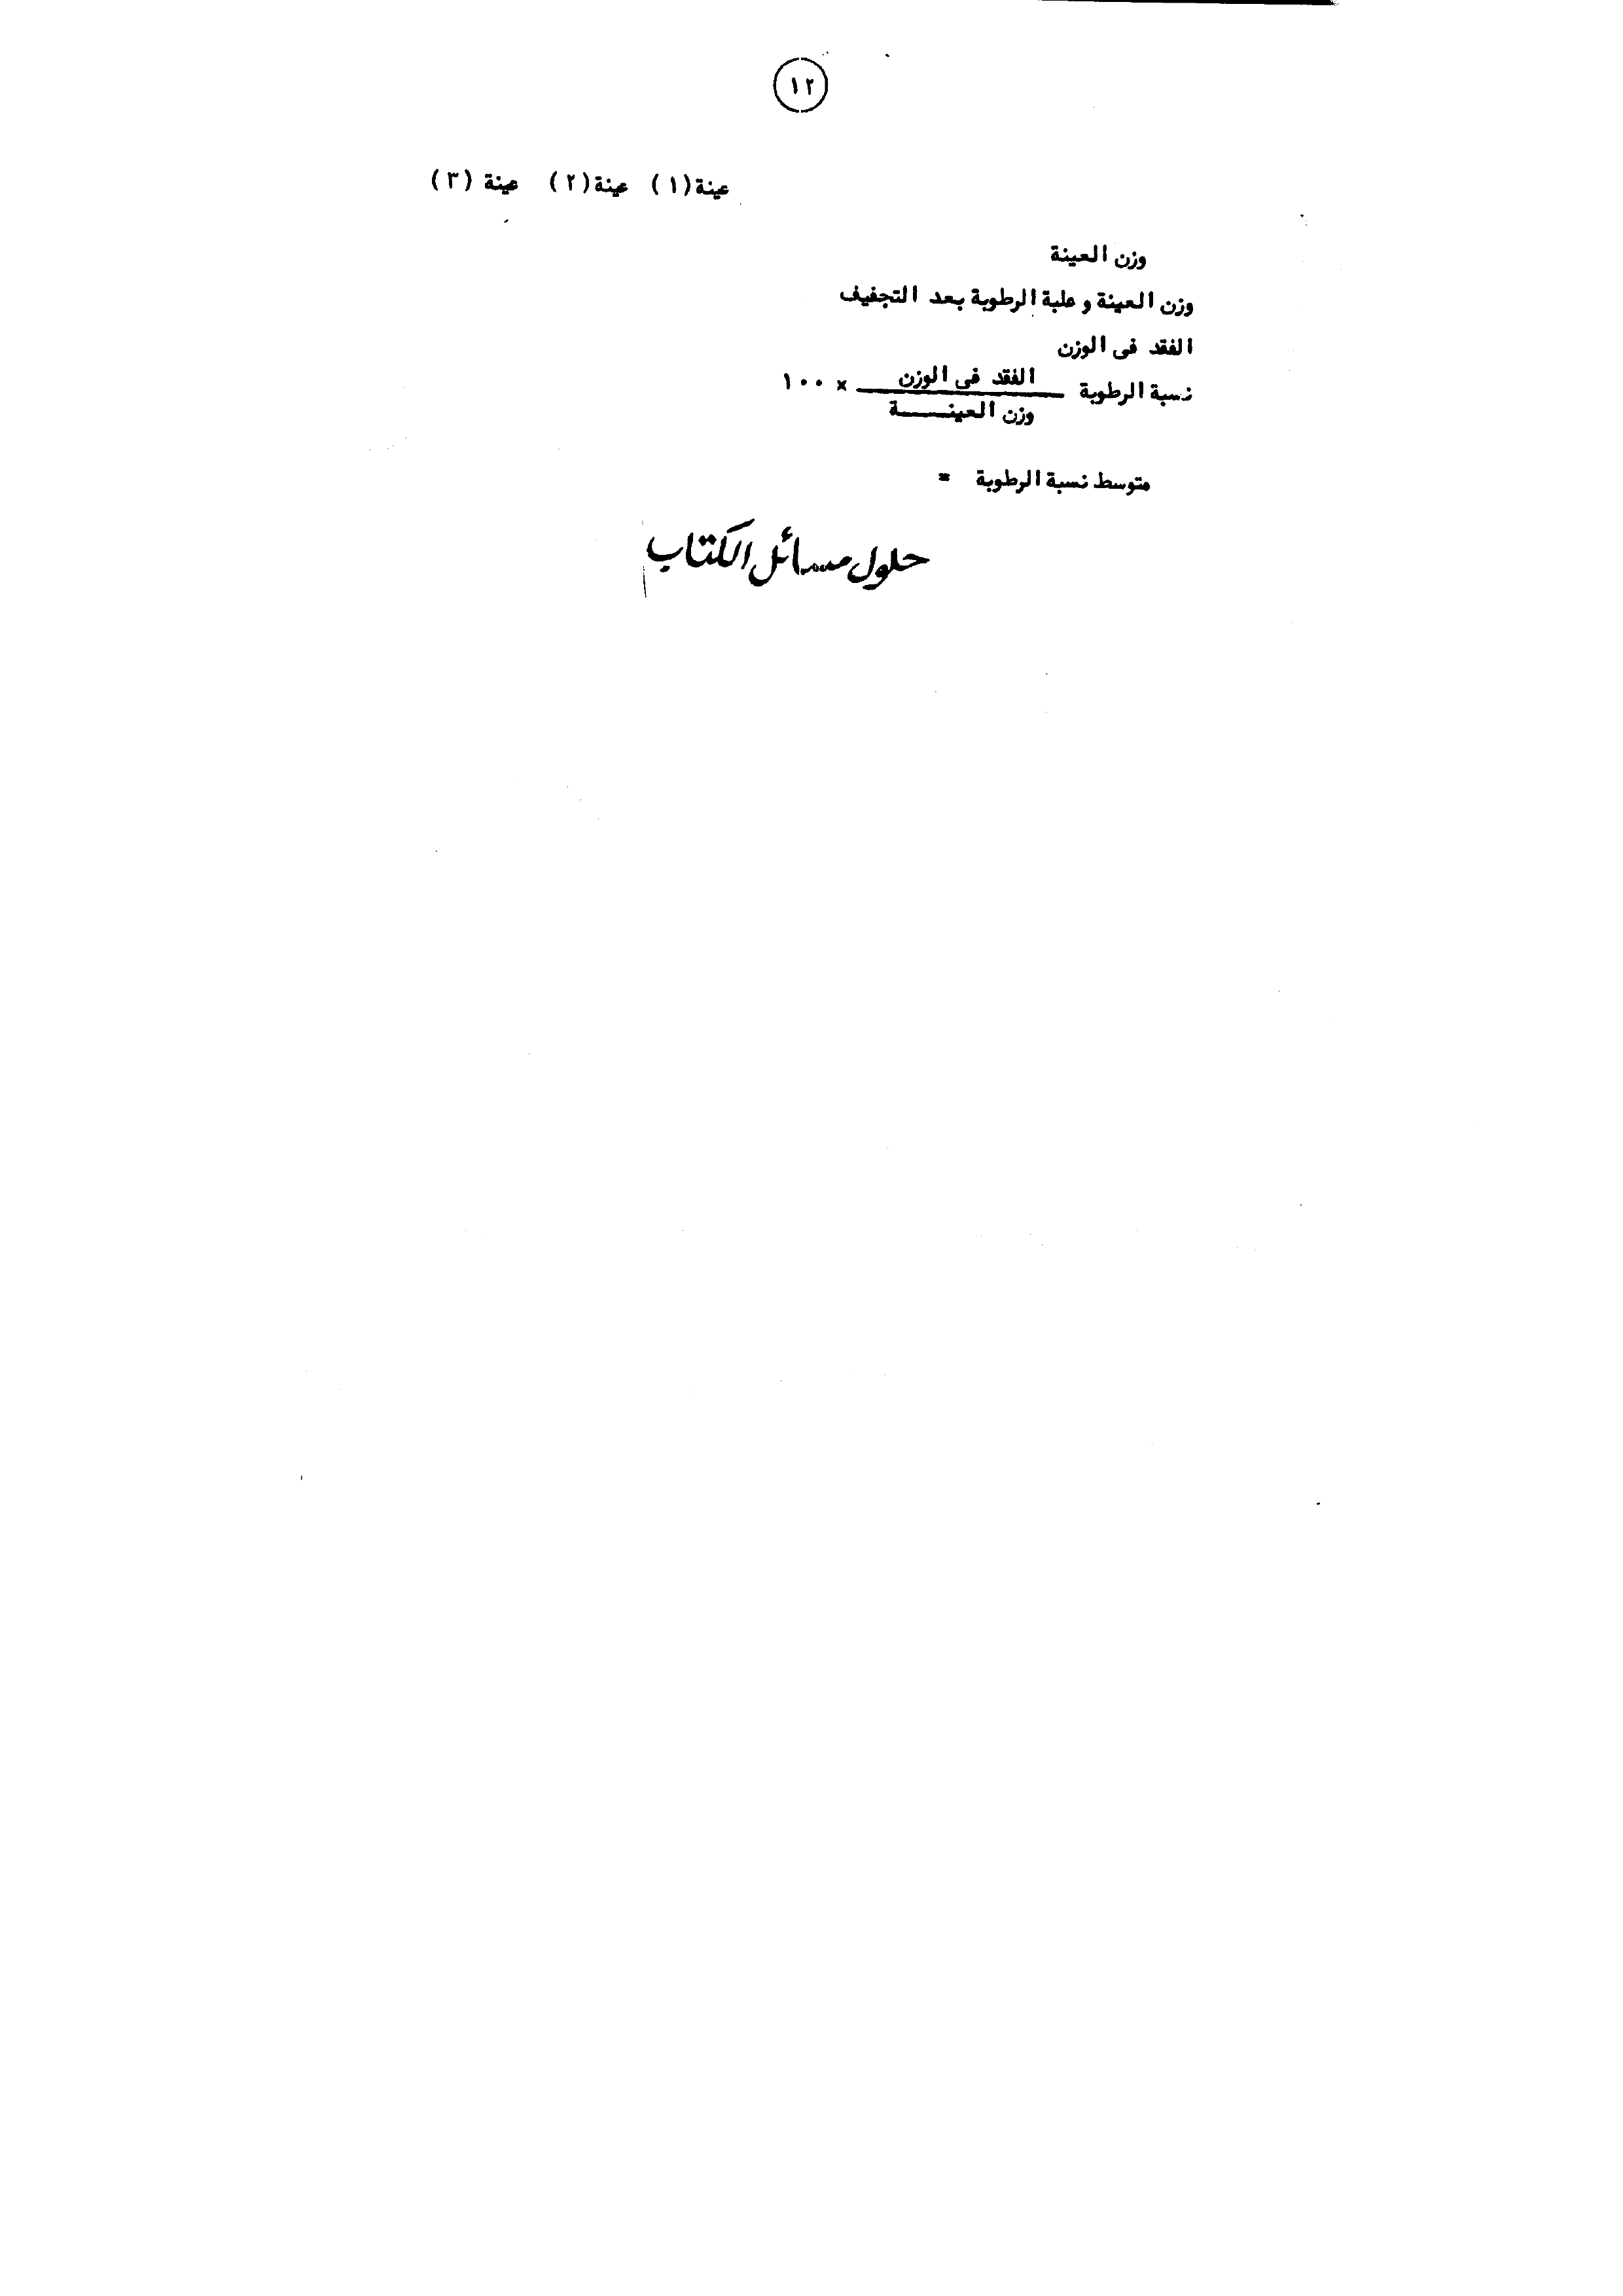 ١٢
عينة (١) عينة (٢) عينة (٣)
وزن العينة
وزن العينة و علبة الرطوبة بعد التجفيف
الفقد فى الوزن
نسبة الرطوبة الفقد فى الوزن × ١٠٠
وزن العينـــــة
متوسط نسبة الرطوبة =
حلول مسائل الكتاب